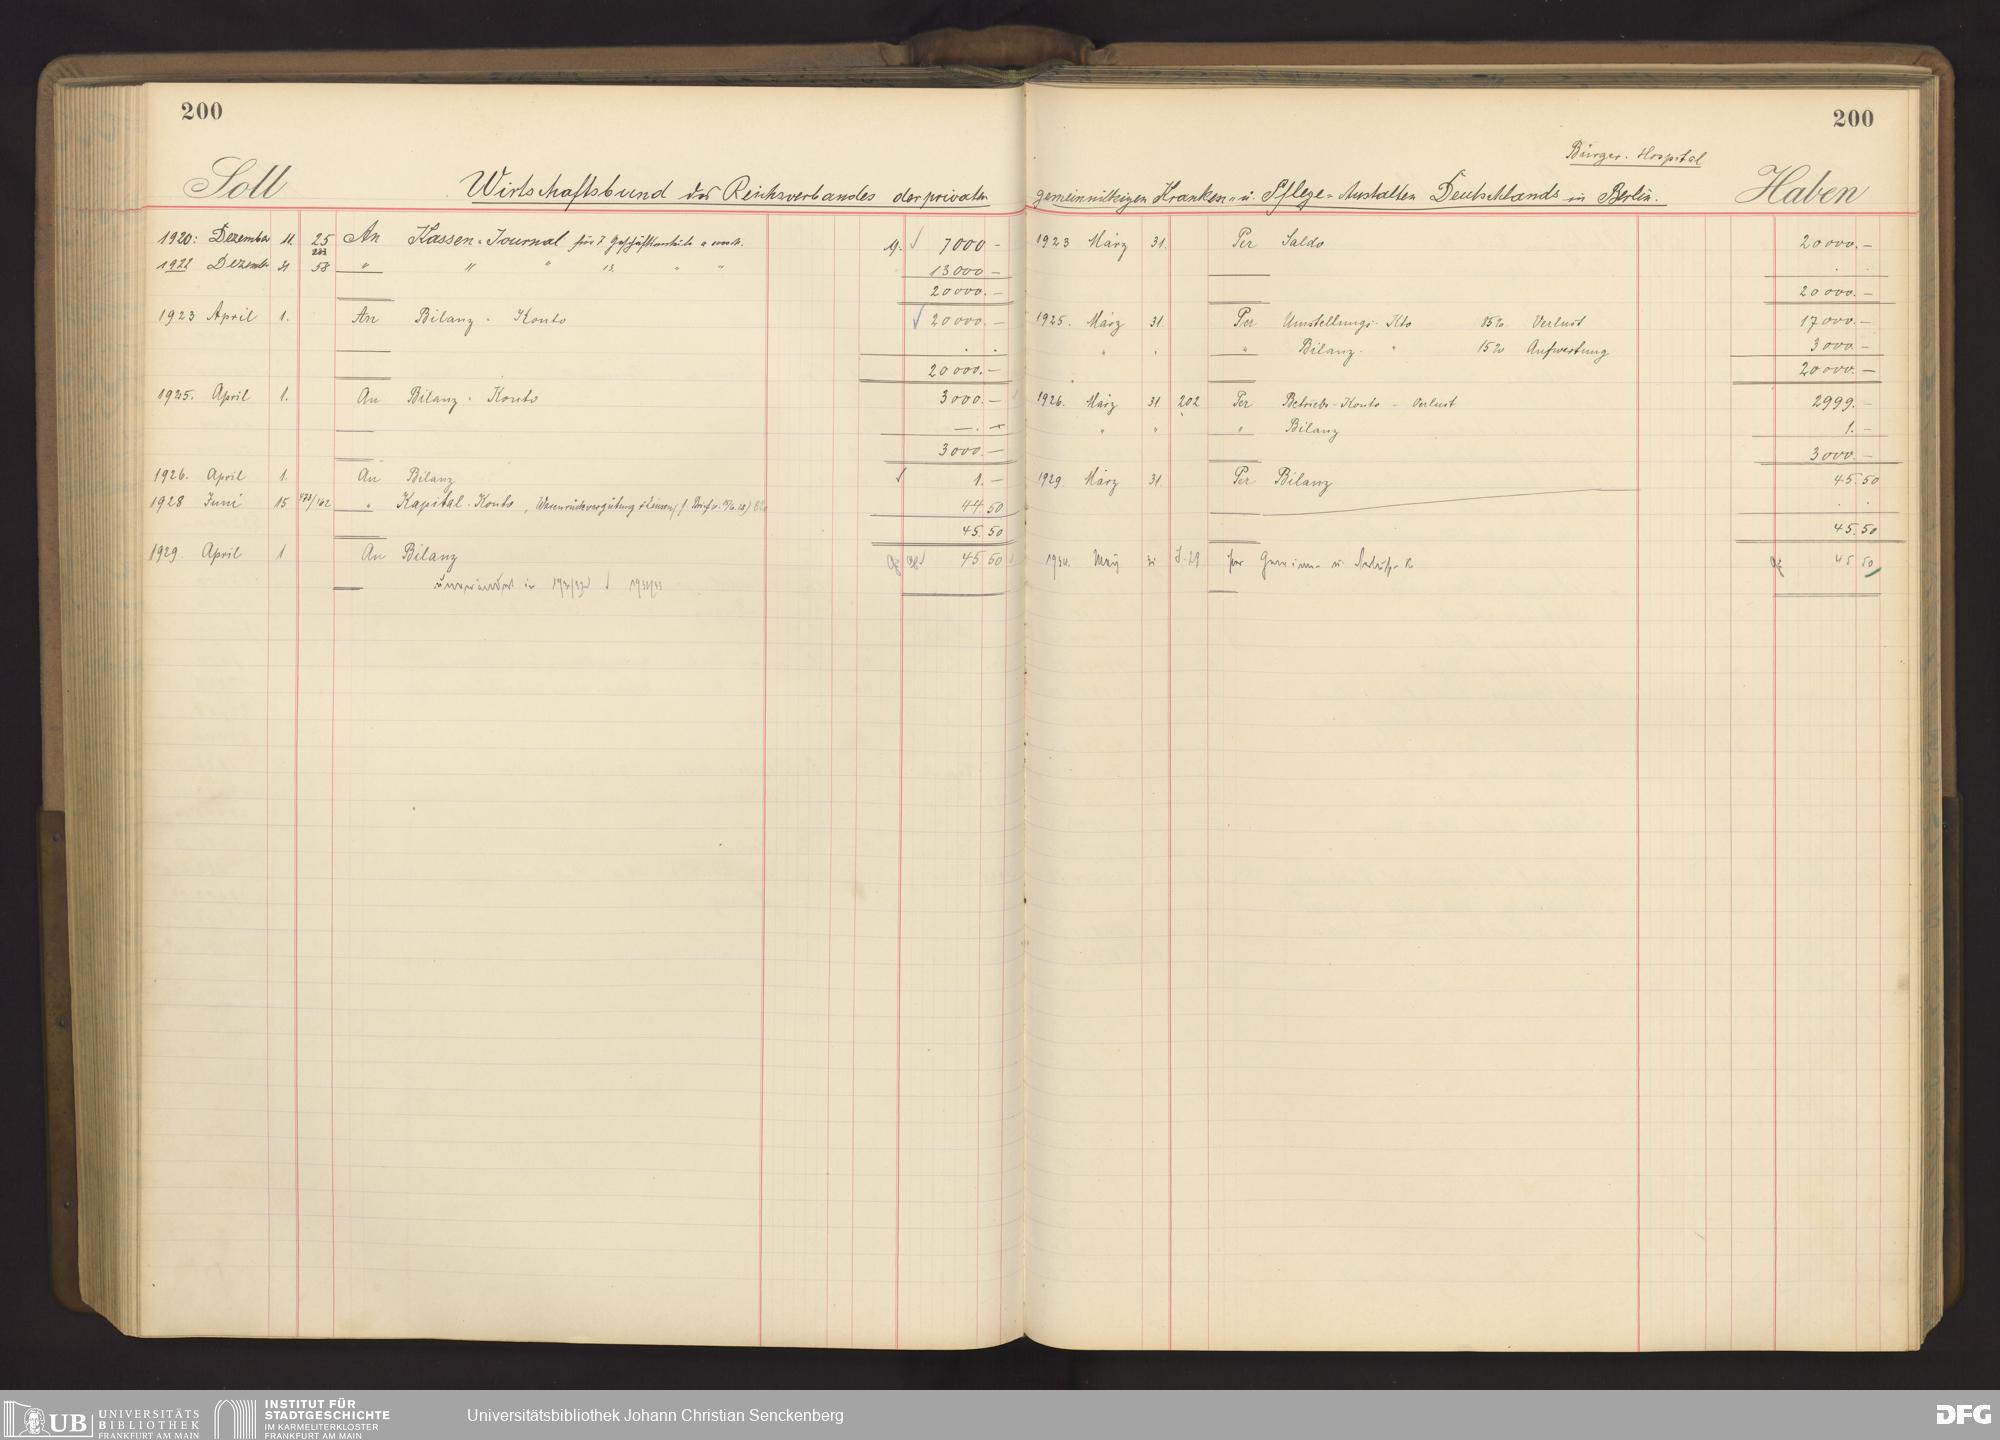 200
Soll
Wirtschaftsbund des Reichsverbandes der privaten
1920: Dezember 11. 25 An Kassen-Journal für 7 Geschäftsanteile M. 7000 –
1922 Dezember 31 58 " " " 13. " " 13000 –
20000. –
1923 April 1. An Bilanz-Konto 20000. –
20000. –
1925. April 1. An Bilanz-Konto 3000. –
3000. –
1926. April 1. An Bilanz 1. –
1928 Juni 15 " Kapital-Konto, Warenrückvergütung 44.50
45.50
1929. April 1 An Bilanz 45 50
unverändert in
200
Bürger-Hospital
gemeinnützigen Kranken- u. Pflege-Anstalten Deutschlands in Berlin.
Haben
1923 März 31. Per Saldo 20000. –
20000. –
1925. März 31. Per Umstellungs-Kto 85% Verlust 17000. –
" " " Bilanz- " 15% Aufwertung 3000 –
20000. –
1926. März 31 202 Per Betriebs-Konto – Verlust 2999. –
" " " Bilanz 1. –
3000. –
1929. März 31 Per Bilanz 45.50
45.50
per Gewinn- u. 45 50
UB UNIVERSITÄTS
BIBLIOTHEK
FRANKFURT AM MAIN
INSTITUT FÜR
STADTGESCHICHTE
IM KARMELITERKLOSTER
FRANKFURT AM MAIN
Universitätsbibliothek Johann Christian Senckenberg
DFG